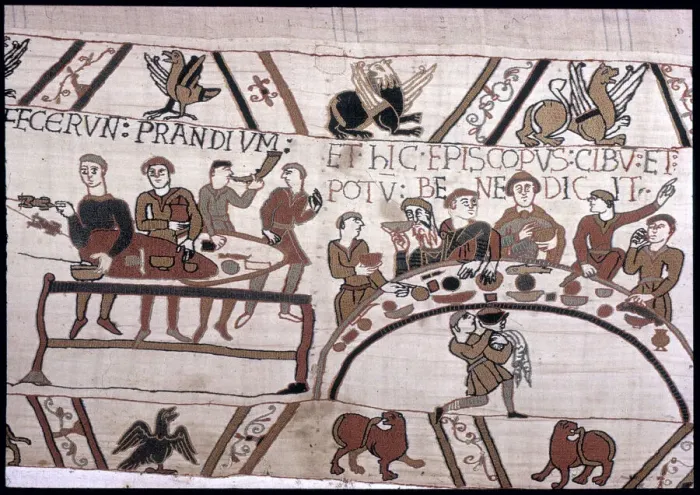 FECERVN: PRANDIVM:
ET·hIC·EPISCOPVS:CIBV:ET:
POTV: BE NE DIC IT·